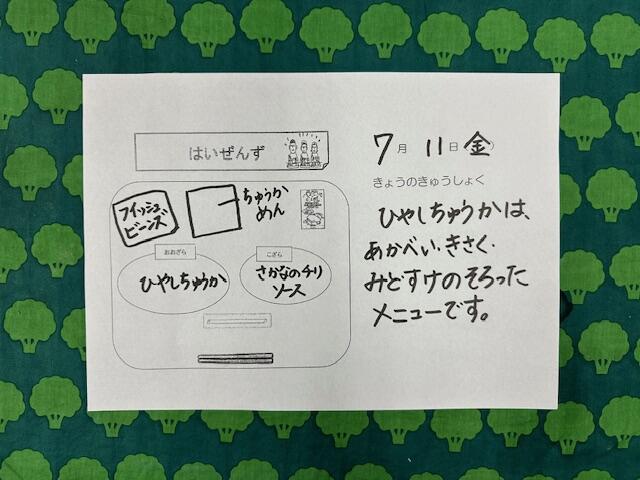 はいぜんず
フィッシュ
ビーンズ
ちゅうか
めん
おおざら
ひやしちゅうか
こざら
さかなのチリ
ソース
7月11日(金)
きょうのきゅうしょく
ひやしちゅうかは、
あかべい.きさく.
みどすけのそろった
メニューです。